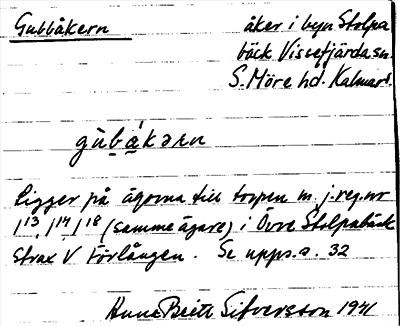 Gubbåkern
åker i byn Stolpa
bäck Vissefjärda sn.
S. Möre hd. Kalmar l.
gùb̬ákərn
Ligger på ägorna till torpen m. j.reg.nr
1/13, 1/14, 1/18 (samme ägare) i Övre Stolpabäck
strax V Förlången. Se upps.s. 32
Anne Britt Sifversson 1941